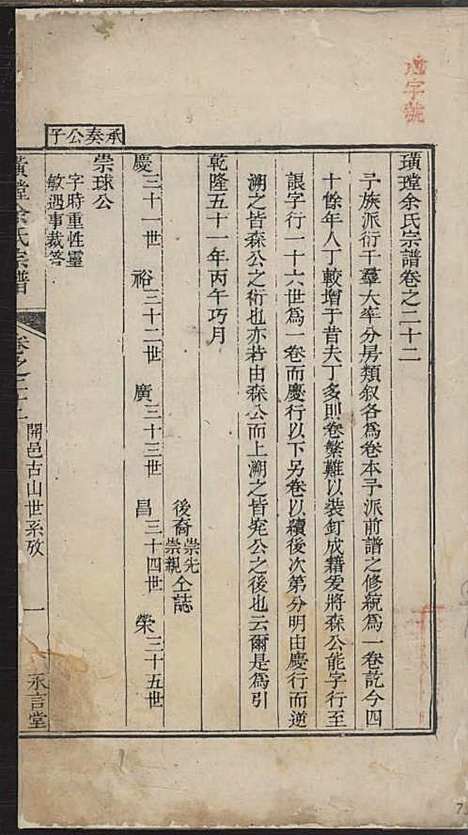 璜瑆余氏宗譜卷之二十二
子族派衍千羣大率分房類叙各為卷本子派前譜之修統為一卷訖今四
十餘年人丁較增于昔夫丁多則卷繁難以裝釘成籍爰將森公能字行至
詪字行一十六世為一卷而慶行以下另卷以續後次第分明由慶行而逆
溯之皆森公之衍也亦若由森公而上溯之皆尭公之後也云爾是為引
後裔崇先崇親仝誌
乾隆五十一年丙午巧月
慶三十一世 裕三十二世 廣三十三世 昌三十四世 榮三十五世
承奏公子
崇球公
字時重性靈
敏遇事裁答
璜瑆余氏宗譜
卷之二十二
開邑古山世系攷
一
永言堂